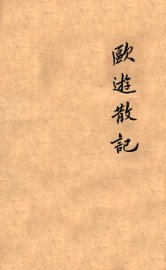 歐遊散記